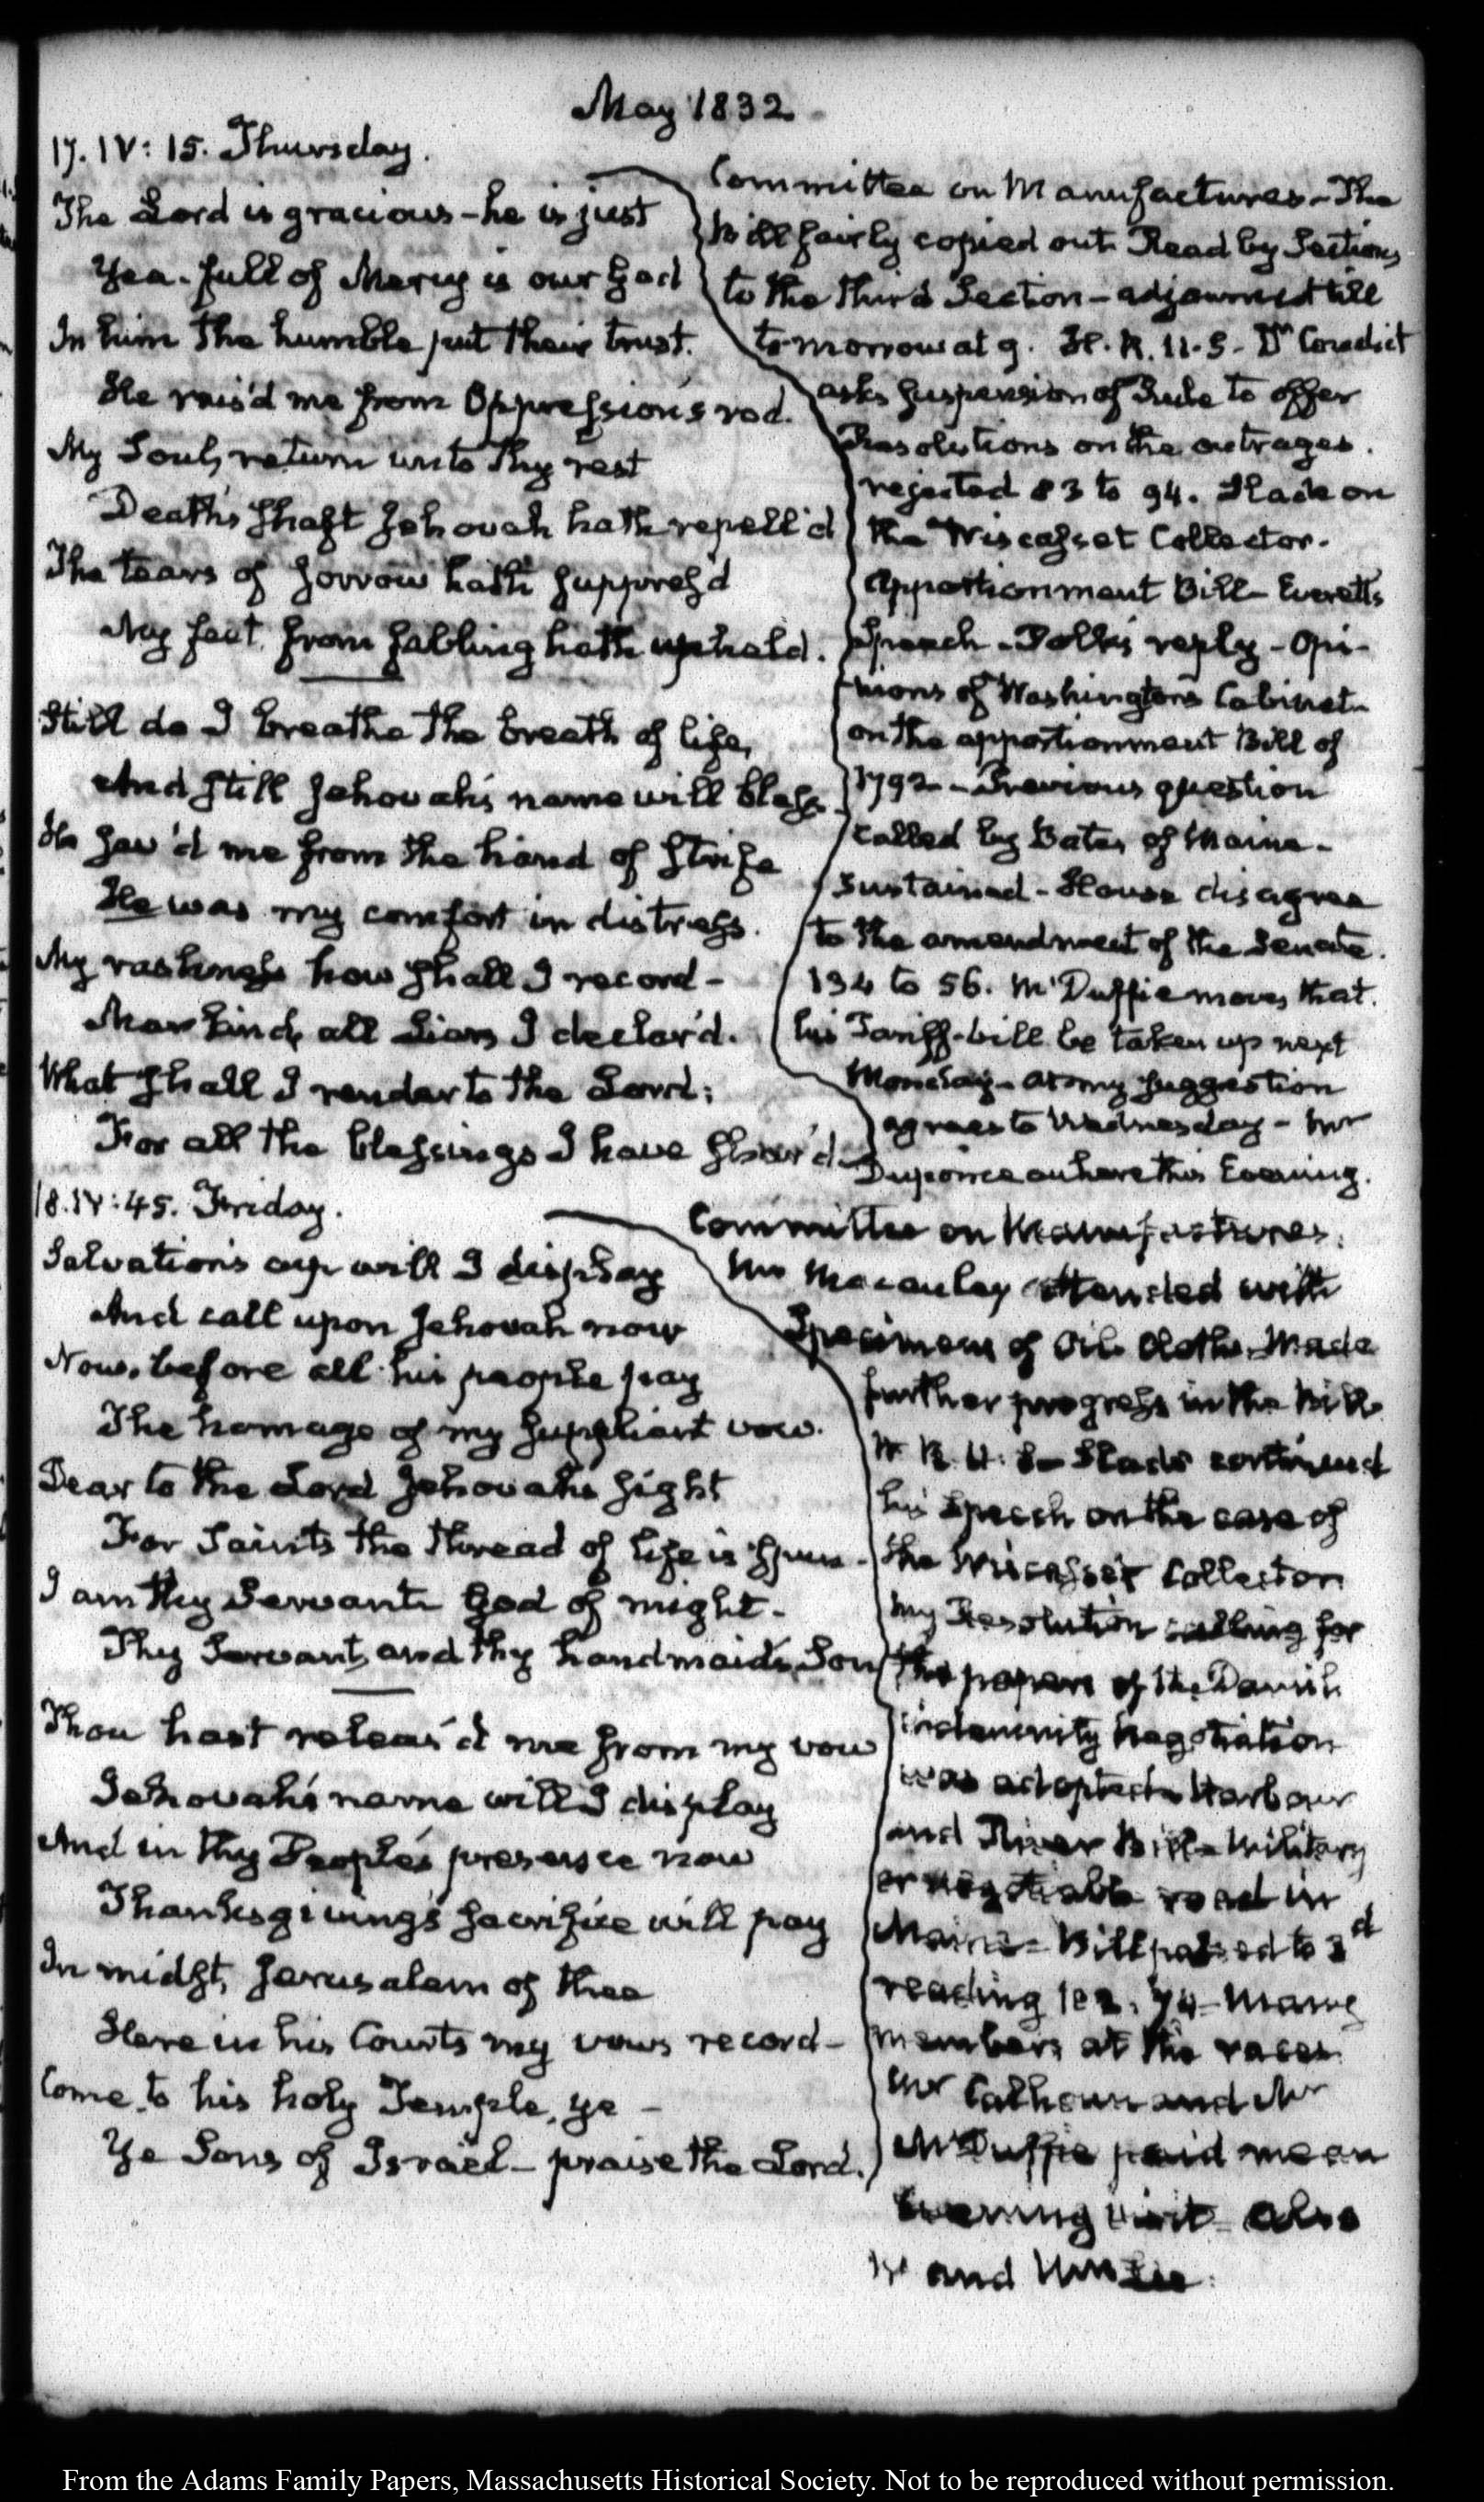 May 1832
17. IV: 15. Thursday.
The Lord is gracious - he is just
Yea - full of Mercy is our God
In him the humble put their trust.
He rais'd me from Oppression's rod.
My Soul, return unto thy rest
Death's shaft Jehovah hath repell'd
The tears of sorrow hath suppress'd
My feet from falling hath upheld.
Still do I breathe the breath of life,
And still Jehovah's name will bless.
He sav'd me from the hand of strife
He was my comfort in distress.
My rashness how shall I record -
Mankind, all Liars I declar'd.
What shall I render to the Lord;
For all the blessings I have shar'd -
Committee on Manufactures - The
Bill fairly copied out. Read by Sections
to the third Section - adjourned till
to-morrow at 9. H. R. U. S - Dr Condict
asks suspension of Rule to offer
Resolutions on the outrages.
rejected 83 to 94. Slade on
the Wiscasset Collector.
Apportionment Bill - Everett's
Speech - Polk's reply - Opi-
nions of Washington's Cabinet
on the apportionment Bill of
1792 - Previous question
called by Bates of Maine -
sustained - House disagree
to the amendment of the Senate.
134 to 56. McDuffie moves that
his Tariff-bill be taken up next
Monday - at my suggestion
agrees to Wednesday - Mr
Duponceau here this Evening.
18. IV: 45. Friday.
Salvation's cup will I display
And call upon Jehovah now
Now, before all his people pay
The homage of my suppliant vow.
Dear to the Lord Jehovah's sight
For Saints the thread of life is spun -
I am thy Servant God of might -
Thy Servant, and thy handmaid's Son
Thou hast releas'd me from my vow
Jehovah's name will I display
And in thy People's presence now
Thanksgiving's sacrifice will pay
In midst, Jerusalem of thee
Here in his Courts my vows record -
Come to his holy Temple, ye -
Ye Sons of Israel - praise the Lord.
Committee on Manufactures.
Mr Macauley attended with
Specimens of Oil Cloths - Made
further progress in the Bill
H. R. U. S - Slade continued
his speech on the case of
the Wiscasset Collector
My Resolution calling for
the papers of the Danish
indemnity negotiation
was adopted - Harbour
and River Bill - Military
or negotiable road in
Maine - Bill passed to 3d
reading 102. 74 - Many
members at the races
Mr Calhoun and Mr
McDuffie paid me an
Evening visit - also
Mr and Mrs Lee.
From the Adams Family Papers, Massachusetts Historical Society. Not to be reproduced without permission.